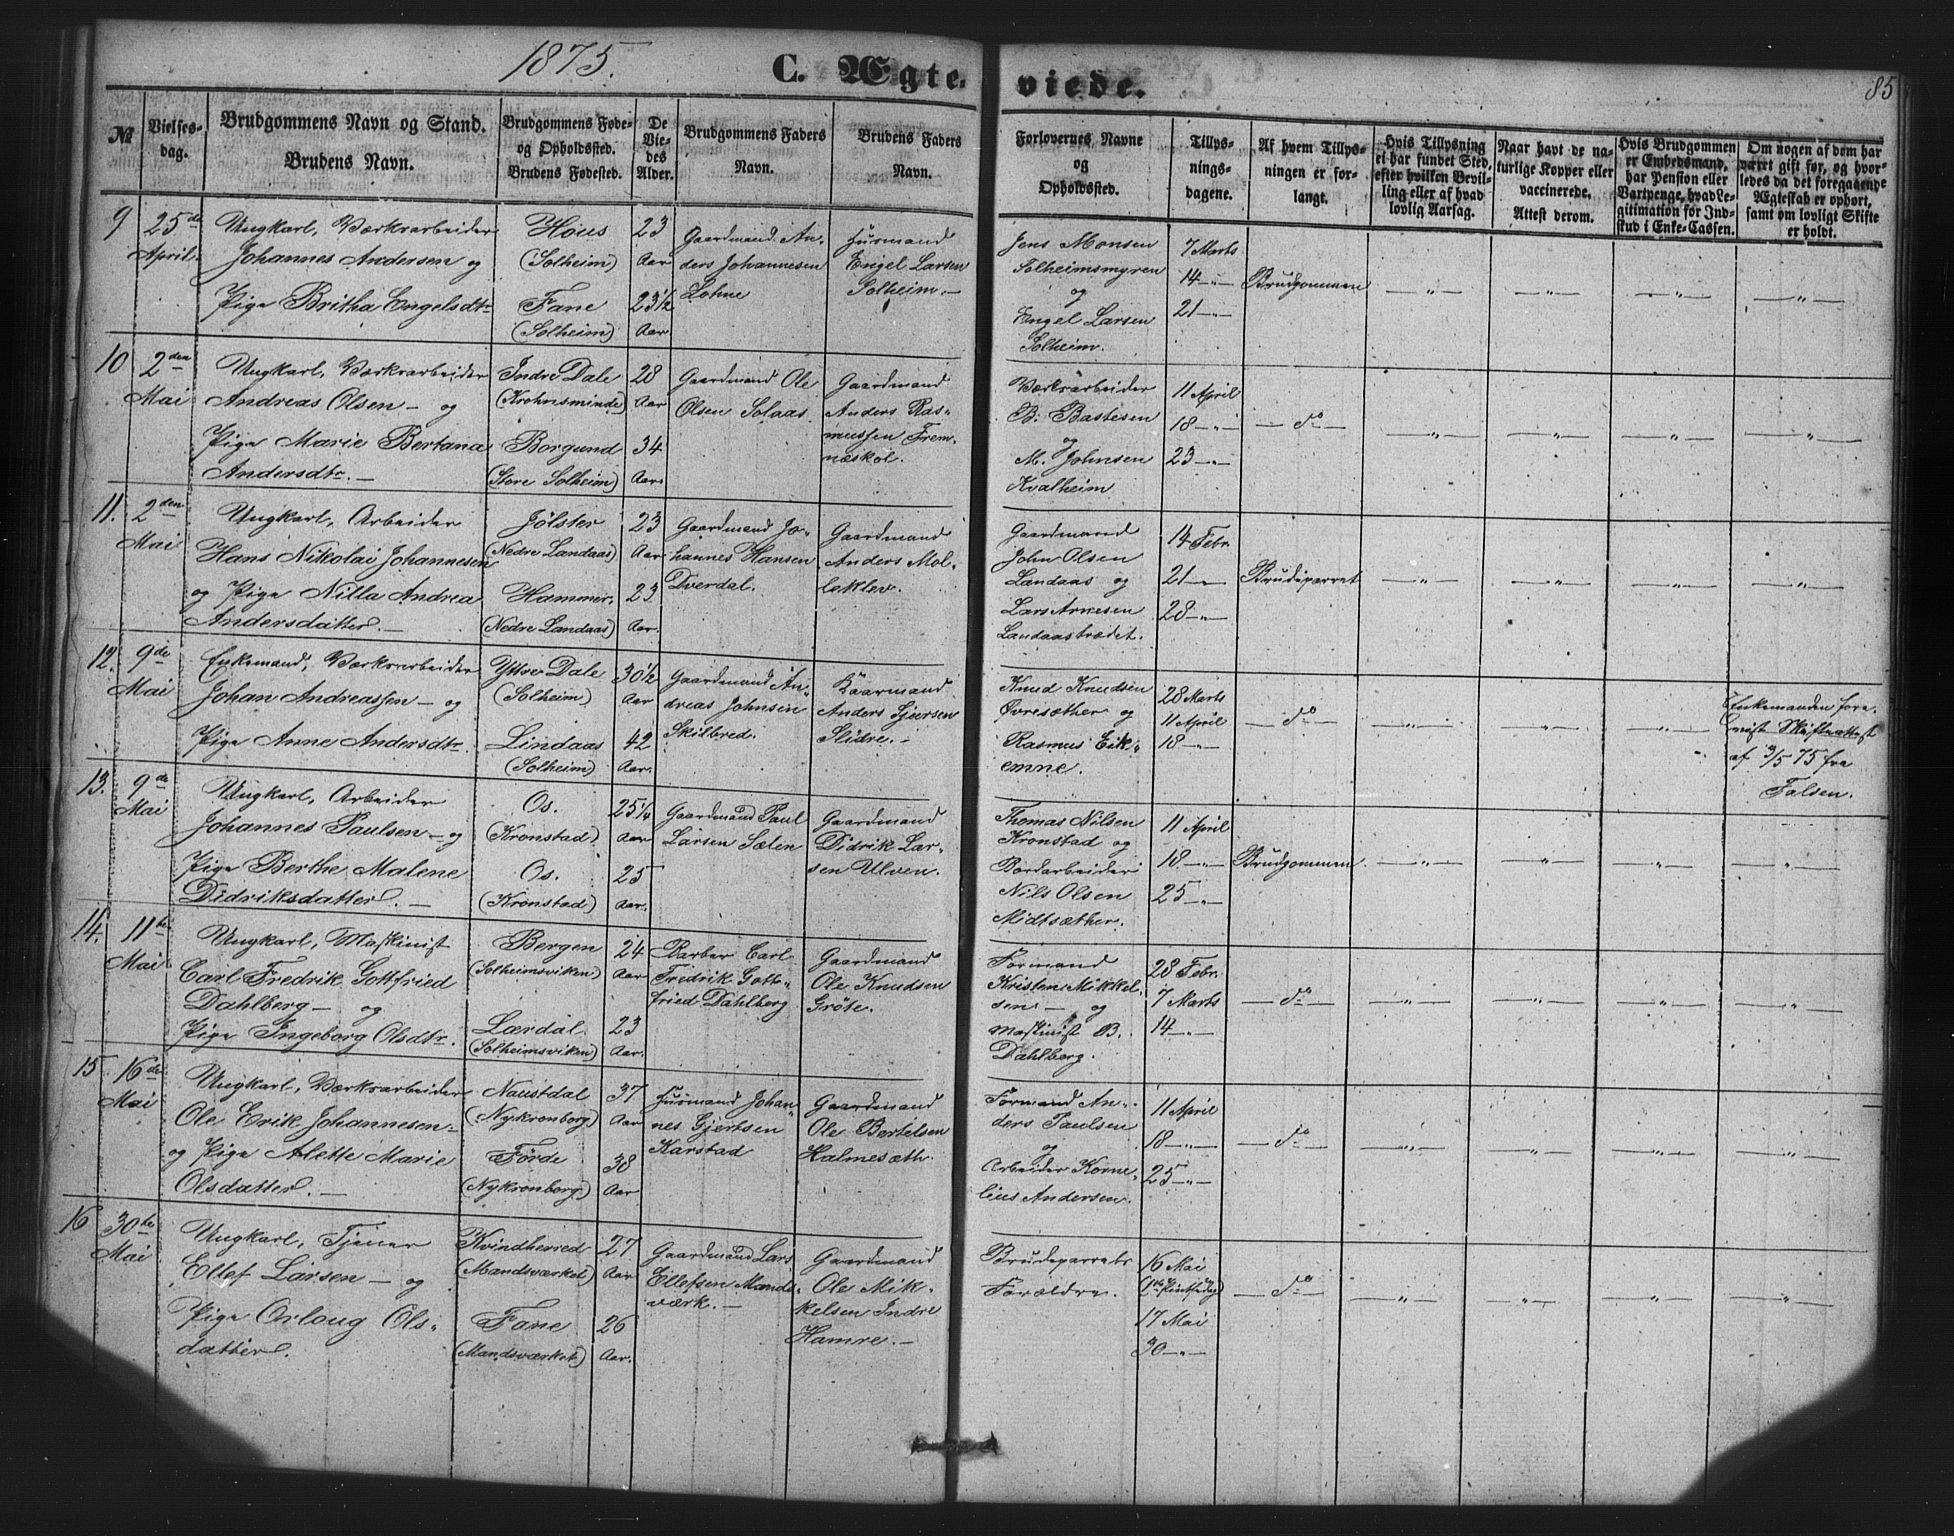 1875.
C. Ægte-
viede.
85
№
Vielses-
dag.
Brudgommens Navn og Stand.
Brudens Navn.
Brudgommens Føde-
og Opholdssted.
Brudens Fødested.
De
Vie-
des
Alder.
Brudgommens Faders
Navn.
Brudens Faders
Navn.
Forlovernes Navne
og
Opholdssted.
Tillys-
nings-
dagene.
Af hvem Tillys-
ningen er for-
langt.
Hvis Tillysning
ei har fundet Sted,
efter hvilken Bevil-
ling eller af hvad
lovlig Aarsag.
Naar havt de na-
turlige Kopper eller
vaccinerede.
Attest derom.
Hvis Brudgommen
er Embedsmand,
har Pension eller
Vartpenge, hvad Le-
gitimation for Ind-
skud i Enke-Cassen.
Om nogen af dem har
været gift før, og hvor-
ledes da det foregaaende
Ægteskab er ophørt,
samt om lovligt Skifte
er holdt.
9
25de
April.
Ungkarl, Værksarbeider
Johannes Andersen og
Pige Britha Engelsdtr
Hous
(Solheim)
Fane
(Solheim)
23
Aar
23½
Aar
Gaardmand An-
ders Johannesen
Lohne
Husmand
Engel Larsen
Solheim.—
Jens Monsen
Solheimsmyren
og
Engel Larsen
Solheim.
7 Marts
14 —„—
21 —„—
Brudgommen
—„— —„— —„— —„—
10
2den
Mai
Ungkarl, Værksarbeider
Andreas Olsen — og
Pige Marie Bertana
Andersdtr. —
Indre Dale
(Krohnsminde)
Borgund
(Store Solheim)
28
Aar
34
Aar
Gaardmand Ole
Olsen Solaas
Gaardmand
Anders Ras-
mussen Frem-
næskol.
Værksarbeider
B. Bastesen
og
M. Johnsen
Kvalheim
11 April
18 —„—
23 —„—
— do —
—„— —„— —„— —„—
11.
2den
Mai
Ungkarl, Arbeider
Hans Nikolai Johannesen
og Pige Nilla Andrea
Andersdatter. —
Jølster
(Nedre Landaas)
Hammer.
(Nedre Landaas)
23
Aar
23
Aar.
Gaardmand Jo-
hannes Hansen
Dverdal.
Gaardmand
Anders Mol-
leklev.
Gaardmand
John Olsen
Landaas og
Lars Arnesen
Landaastrædet.
14 Febr.
21 —„—
28 —„—
Brudeparret
—„— —„— —„— —„—
12.
9de
Mai
Enkemand, Værksarbeider
Johan Andreassen — og
Pige Anne Andersdtr.
Yttre Dale
(Solheim)
Lindaas
(Solheim)
30½
Aar
42
Aar.
Gaardmand An-
dreas Johnsen
Skilbred.
Kaarmand
Anders Sjursen
Slidre.—
Knud Knudsen
Øvresæther og
Rasmus Eik-
emne.
28 Marts
11 April
18 —„—
— do —
—„— —„— —„—
Enkemanden fore-
vist Skifteattest
af 3/5 75 fra
Falsen.
13.
9de
Mai
Ungkarl, Arbeider
Johannes Paulsen — og
Pige Berthe Malene
Didriksdatter. —
Os.
(Kronstad)
Os.
(Kronstad)
25¼
Aar
25
Aar.
Gaardmand Paul
Larsen Sælen
Gaardmand
Didrik Lar-
sen Ulven.
Thomas Nilsen
Kronstad og
Bordarbeider
Nils Olsen
Midtsæther.
11 April
18 —„—
25 —„—
Brudgommen
—„— —„— —„— —„—
14.
11te
Mai
Ungkarl, Maskinist
Carl Fredrik Gottfried
Dahlberg — og
Pige Ingeborg Olsdtr.
Bergen
(Solheimsviken)
Lærdal.
(Solheimsviken)
24
Aar
23
Aar.
Barber Carl
Fredrik Gott-
fried Dahlberg
Gaardmand
Ole Knudsen
Grøte.
Formand
Kristen Mikkel-
sen — og
Maskinist B.
Dahlberg.
28 Febr.
7 Marts
14 —„—
— do —
—„— —„— —„— —„—
15
16de
Mai
Ungkarl, Værksarbeider
Ole Erik Johannesen-
og Pige Alette Marie
Olsdatter. —
Naustdal
(Nykronborg)
Førde
(Nykronborg)
37
Aar
38
Aar
Husmand Johan-
nes Gjertsen
Karstad
Gaardmand
Ole Bertelsen
Halmesæth.
Formand An-
ders Paulsen
og
Arbeider Korne-
lius Andersen.
11 April
18 —„—
25 —„—
— do —
—„— —„— —„— —„—
16
30te
Mai
Ungkarl, Tjener
Ellef Larsen — og
Pige Orloug Ols-
datter.
Kvindherred
(Mandsværket)
Fane
(Mandsværket)
27
Aar
26
Aar.
Gaardmand Lars
Ellefsen Mands-
værk. —
Gaardmand
Ole Mik-
kelsen Indre
Hamre. —
Brudeparrets
Forældre.
16 Mai
(1ste Pintsedag)
17 Mai
30 —„—
— do —
—„— —„— —„— —„—